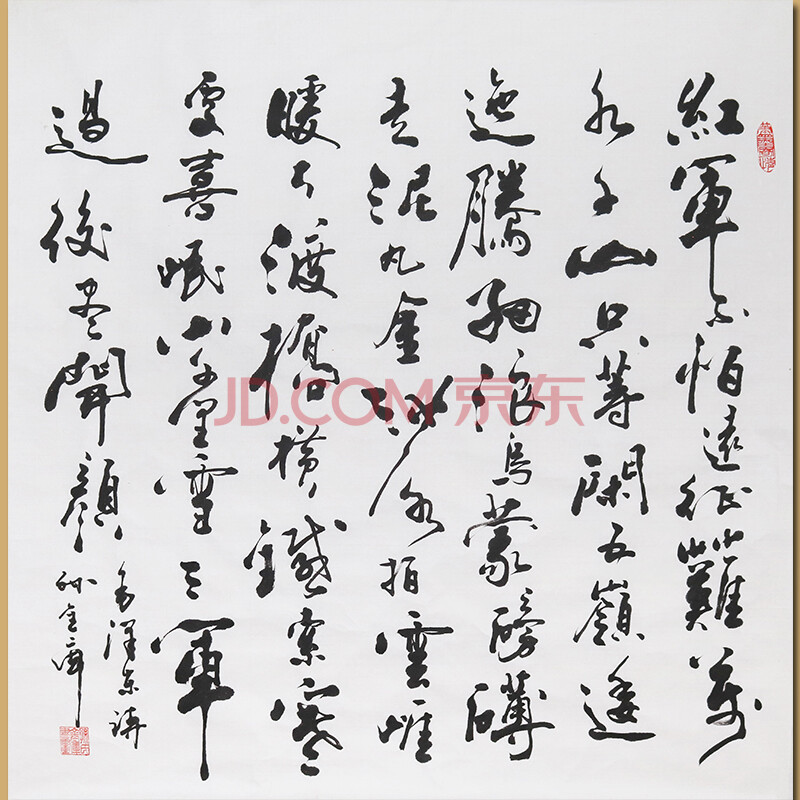 紅軍不怕遠征難萬
水千山只等閑五嶺逶
迤騰細浪烏蒙磅礴
走泥丸金沙水拍雲崖
暖大渡橋橫鐵索寒
更喜岷山千里雪三軍
過後尽開顏
毛澤東詩
JD.COM 京东